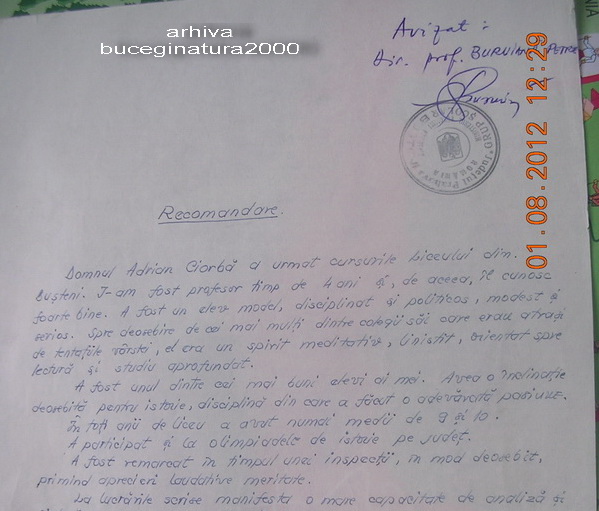 arhiva
buceginatura2000
Avizat:
Dir. prof. BURUIANĂ PETRE
01.08.2012 12:29
GRUP ŞCOLAR
Judeţul Prahova
ROMÂNIA
Recomandare.
Domnul Adrian Ciorbă a urmat cursurile Liceului din
Buşteni. I-am fost profesor timp de 4 ani şi, de aceea, îl cunosc
foarte bine. A fost un elev model, disciplinat şi politicos, modest şi
serios. Spre deosebire de cei mai mulţi dintre colegii săi care erau atraşi
de tentaţiile vârstei, el era un spirit meditativ, liniştit, orientat spre
lectură şi studiu aprofundat.
A fost unul dintre cei mai buni elevi ai mei. Avea o înclinaţie
deosebită pentru istorie, disciplină din care a făcut o adevărată pasiune.
În toţi anii de liceu a avut numai medii de 9 şi 10.
A participat şi la olimpiadele de istorie pe judeţ.
A fost remarcat în timpul unei inspecţii, în mod deosebit,
primind aprecieri laudative meritate.
La lucrările scrise manifesta o mare capacitate de analiză şi